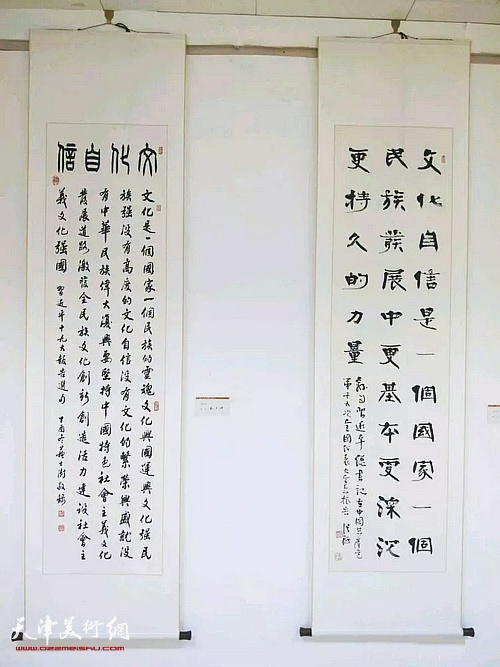 文化自信是一個國家一個
民族發展中更基本更深沉
更持久的力量
習近平總書記在中國共產党
第十九次全國代表大會上報告
文化自信
文化是一個國家一個民族的靈魂文化興國運興文化強民
族強沒有高度的文化自信沒有文化的繁榮興盛就沒
有中華民族偉大復興要堅持中國特色社會主義文化
發展道路激發全民族文化創新創造活力建設社會主
義文化強國 習近平十九大報告選句 丁酉冬
天津美術網
www.022meishu.com